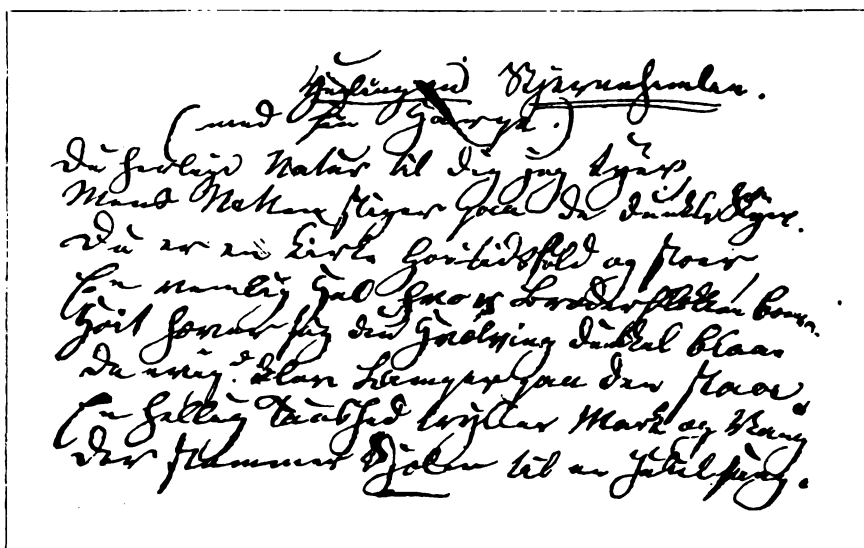 Ynglingen Stjernehimlen.
(med sin Harpe.)
Du herlige Natur til dig jeg tyer,
Mens Natten stiger paa de dunkle Skyer.
Du er en Kirke høitidsfuld og stor,
En venlig Hal hvor Broderflokken boer.
Høit hæver sig din Hvælving dunkel blaae
De evig klare Lamper paa den staae
En hellig Taushed hviler Mark og Vang
Der stemmer Sjælen til en Jubelsang.